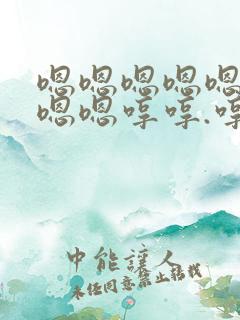 嗯嗯嗯嗯嗯
嗯嗯哼哼.哼
中能譁人
未经同意禁止转载